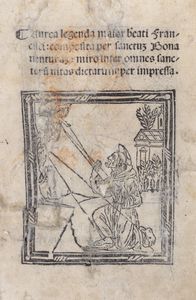 Aurea legenda maior beati Fran-
cisci: composita per sanctum Bona
venturam: miro inter omnes sanc-
torum vitas dictatum per impressa.